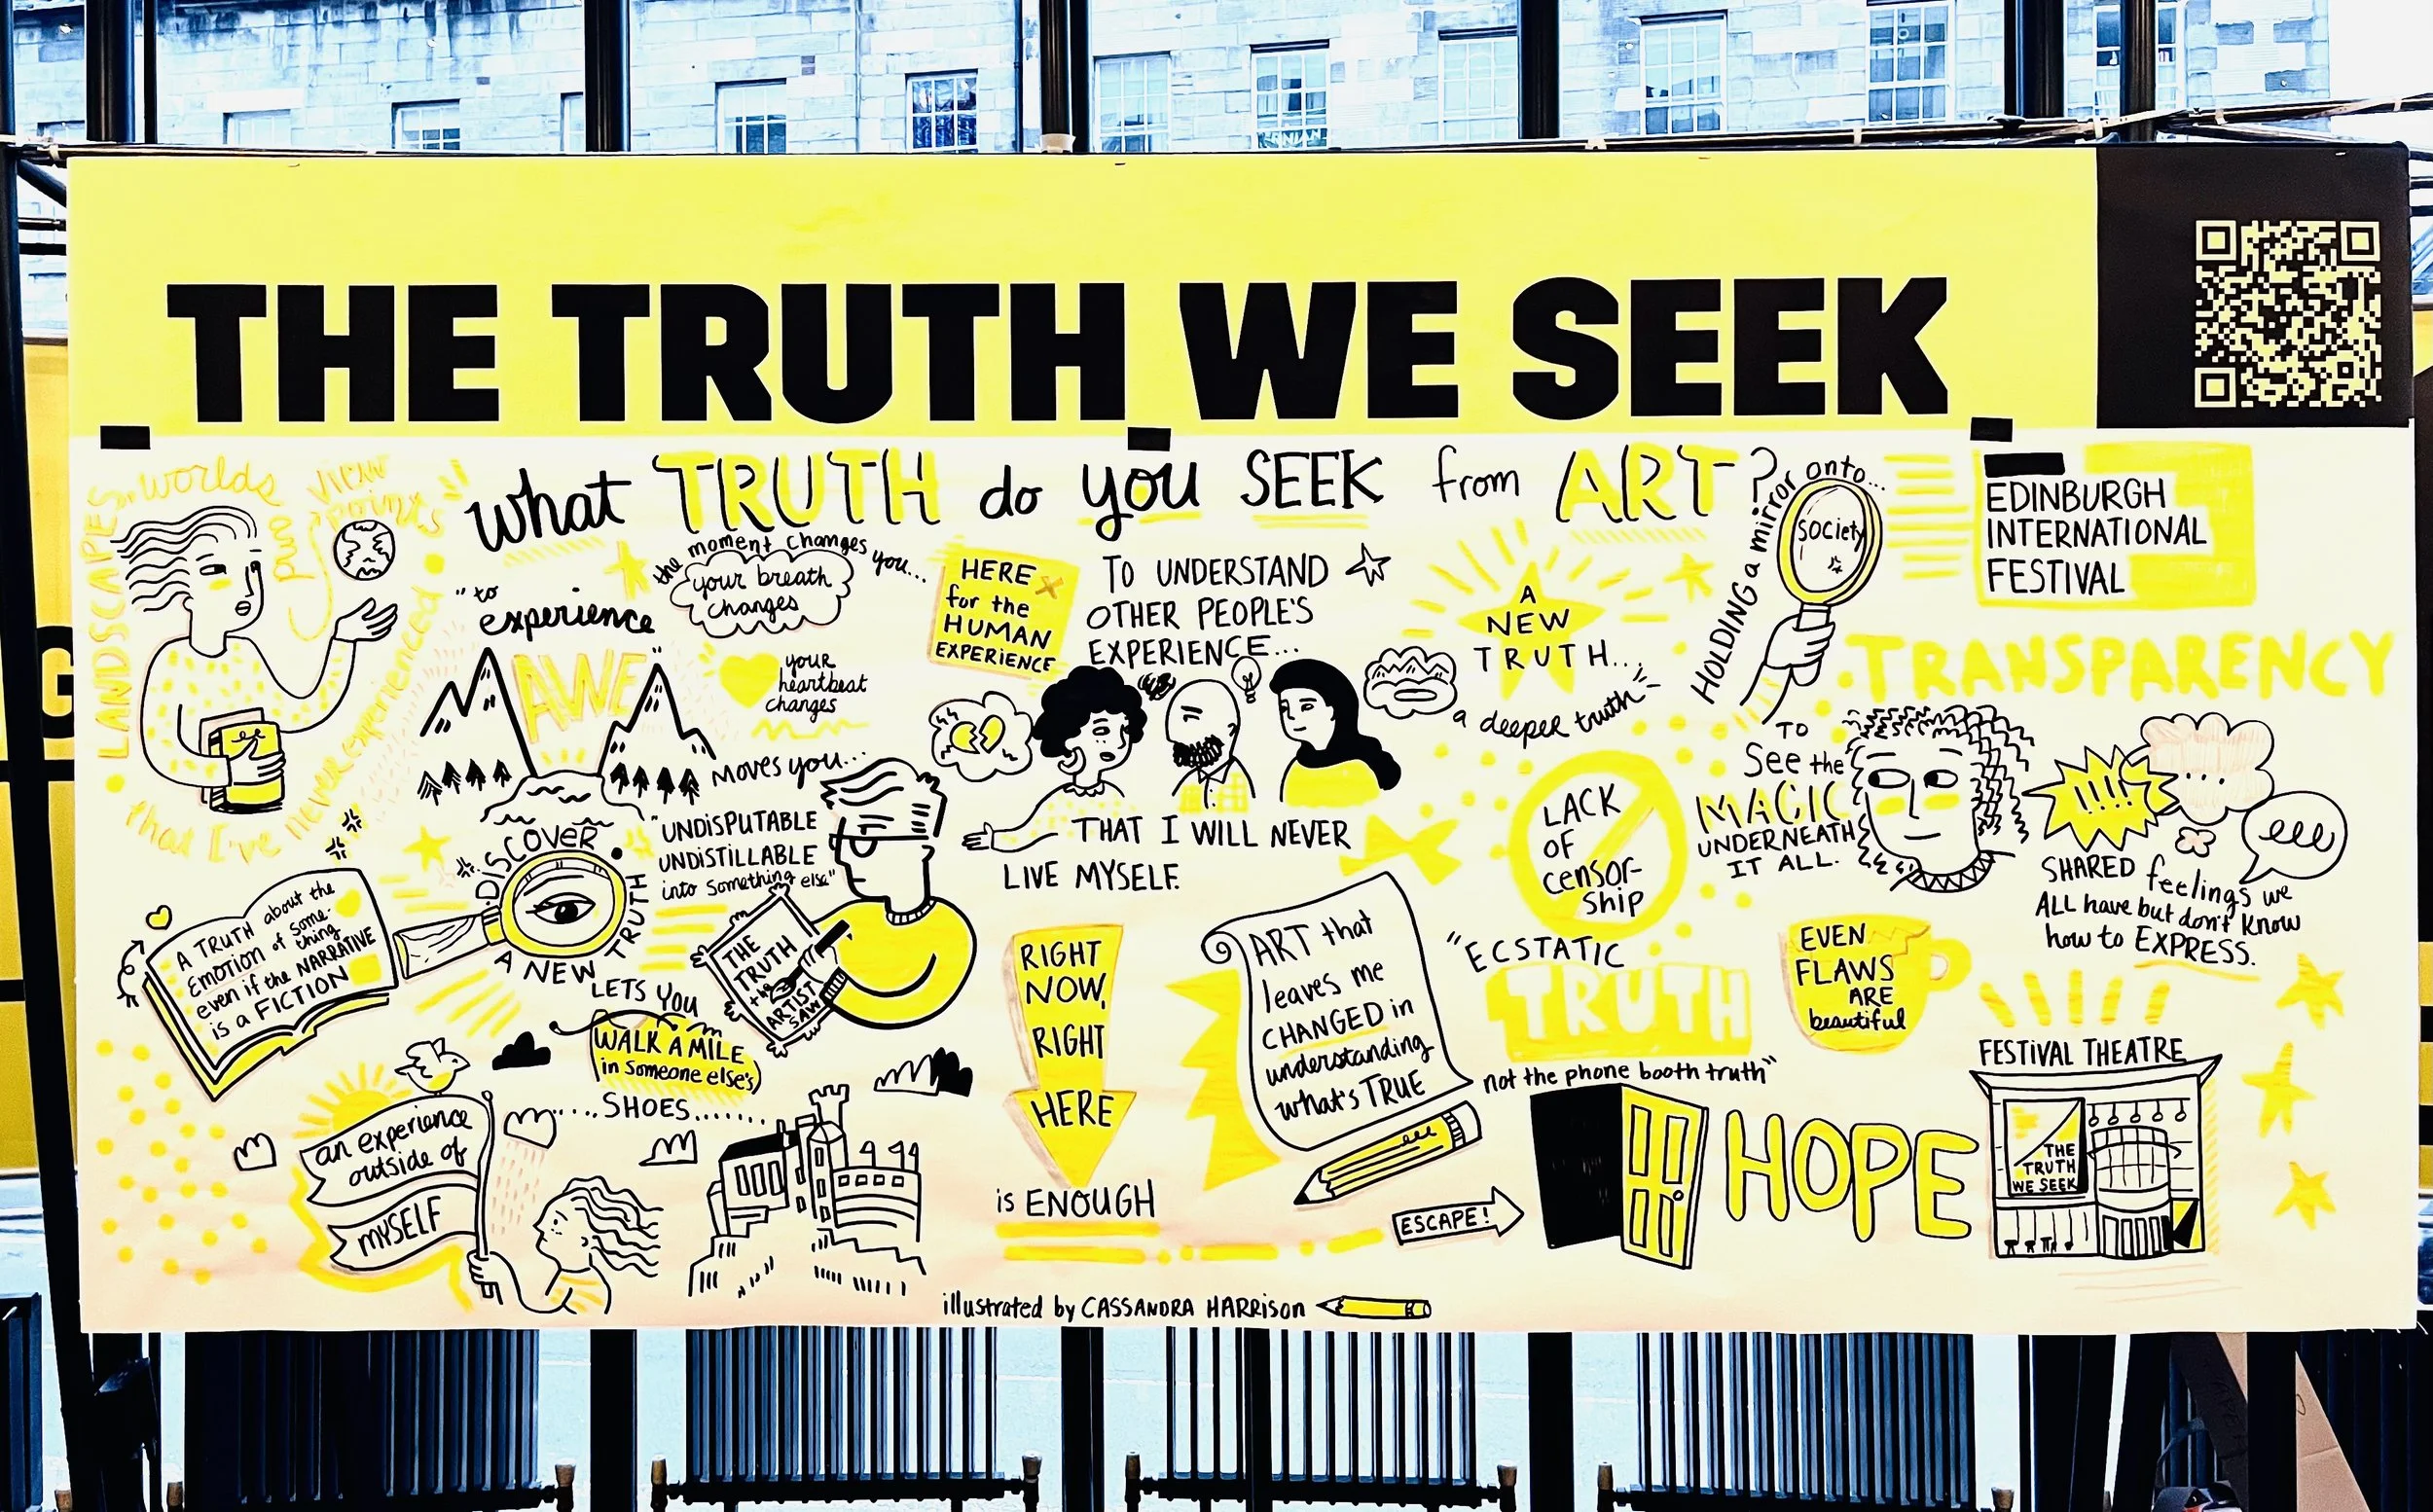 THE TRUTH WE SEEK
what TRUTH do you SEEK from ART?
LANDSCAPES, worlds
and
view
points
that I've never experienced
"to
experience
AWE"
the moment changes you...
your breath
changes
your
heartbeat
changes
moves you...
HERE
for the
HUMAN
EXPERIENCE
TO UNDERSTAND
OTHER PEOPLE'S
EXPERIENCE...
THAT I WILL NEVER
LIVE MYSELF.
A
NEW
TRUTH...
a deeper truth
HOLDING a mirror onto...
society
TO
See the
MAGIC
UNDERNEATH
IT ALL.
EDINBURGH
INTERNATIONAL
FESTIVAL
TRANSPARENCY
!!!!
...
SHARED feelings we
ALL have but don't know
how to EXPRESS.
A TRUTH about the
EMOTION of some-
thing
even if the NARRATIVE
is a FICTION
DISCOVER
A NEW TRUTH
"UNDISPUTABLE
UNDISTILLABLE
into something else"
THE
TRUTH
the
ARTIST
SAW
LETS YOU
WALK A MILE
in someone else's
....SHOES.......
an experience
outside of
MYSELF
RIGHT
NOW,
RIGHT
HERE
is ENOUGH
ART that
leaves me
CHANGED in
understanding
what's TRUE
LACK
OF
censor-
ship
"ECSTATIC
TRUTH
not the phone booth truth"
EVEN
FLAWS
ARE
beautiful
ESCAPE!
HOPE
FESTIVAL THEATRE
THE
TRUTH
WE SEEK
illustrated by CASSANDRA HARRISON
G